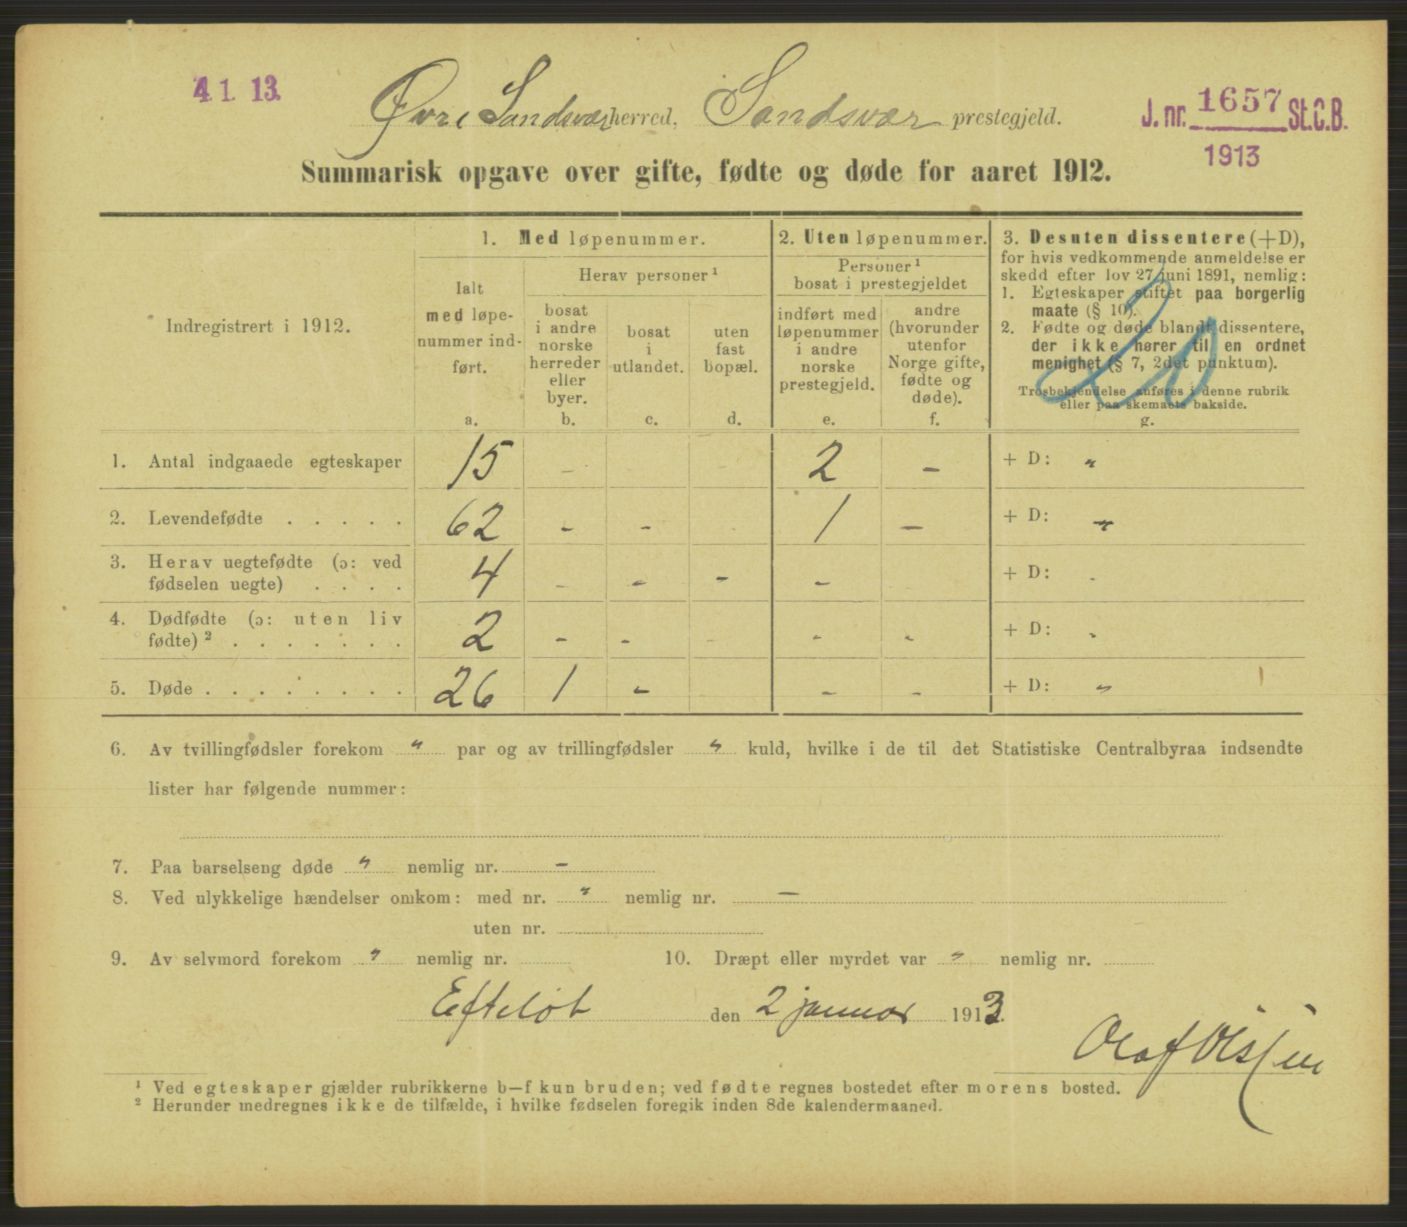 41. 13.
Øvre Sandsvær herred, Sandsvær prestegjeld.
J. nr. 1657 St.C.B.
1913
Summarisk opgave over gifte, fødte og døde for aaret 1912.
Indregistrert i 1912.
1. Med løpenummer.
Ialt
med løpe-
nummer ind-
ført.
a.
Herav personer ¹
bosat
i andre
norske
herreder
eller
byer.
b.
bosat
i
utlandet.
c.
uten
fast
bopæl.
d.
2. Uten løpenummer.
Personer ¹
bosat i prestegjeldet
indført med
løpenummer
i andre
norske
prestegjeld.
e.
andre
(hvorunder
utenfor
Norge gifte,
fødte og
døde).
f.
3. Desuten dissentere (+D),
for hvis vedkommende anmeldelse er
skedd efter lov 27 juni 1891, nemlig:
1. Egteskaper stiftet paa borgerlig
maate (§ 10).
2. Fødte og døde blandt dissentere,
der ikke hører til en ordnet
menighet (§ 7, 2det punktum).
Trosbekjendelse anføres i denne rubrik
eller paa skemaets bakside.
g.
1. Antal indgaaede egteskaper 15 - 2 - + D: "
2. Levendefødte . . . . . 62 - - 1 - + D: "
3. Herav uegtefødte (ɔ: ved
fødselen uegte) . . . . 4 - - - - + D: -
4. Dødfødte (ɔ: uten liv
fødte) ² . . . . . . . 2 - - - - + D: -
5. Døde . . . . . . . . 26 1 - - - + D: "
6. Av tvillingfødsler forekom " par og av trillingfødsler " kuld, hvilke i de til det Statistiske Centralbyraa indsendte
lister har følgende nummer:
7. Paa barselseng døde " nemlig nr. -
8. Ved ulykkelige hændelser omkom: med nr. " nemlig nr. -
uten nr.
9. Av selvmord forekom " nemlig nr. 10. Dræpt eller myrdet var " nemlig nr.
Efteløt den 2 januar 1913.
Olaf Olssen
¹ Ved egteskaper gjælder rubrikkerne b—f kun bruden; ved fødte regnes bostedet efter morens bosted.
² Herunder medregnes ikke de tilfælde, i hvilke fødselen foregik inden 8de kalendermaaned.